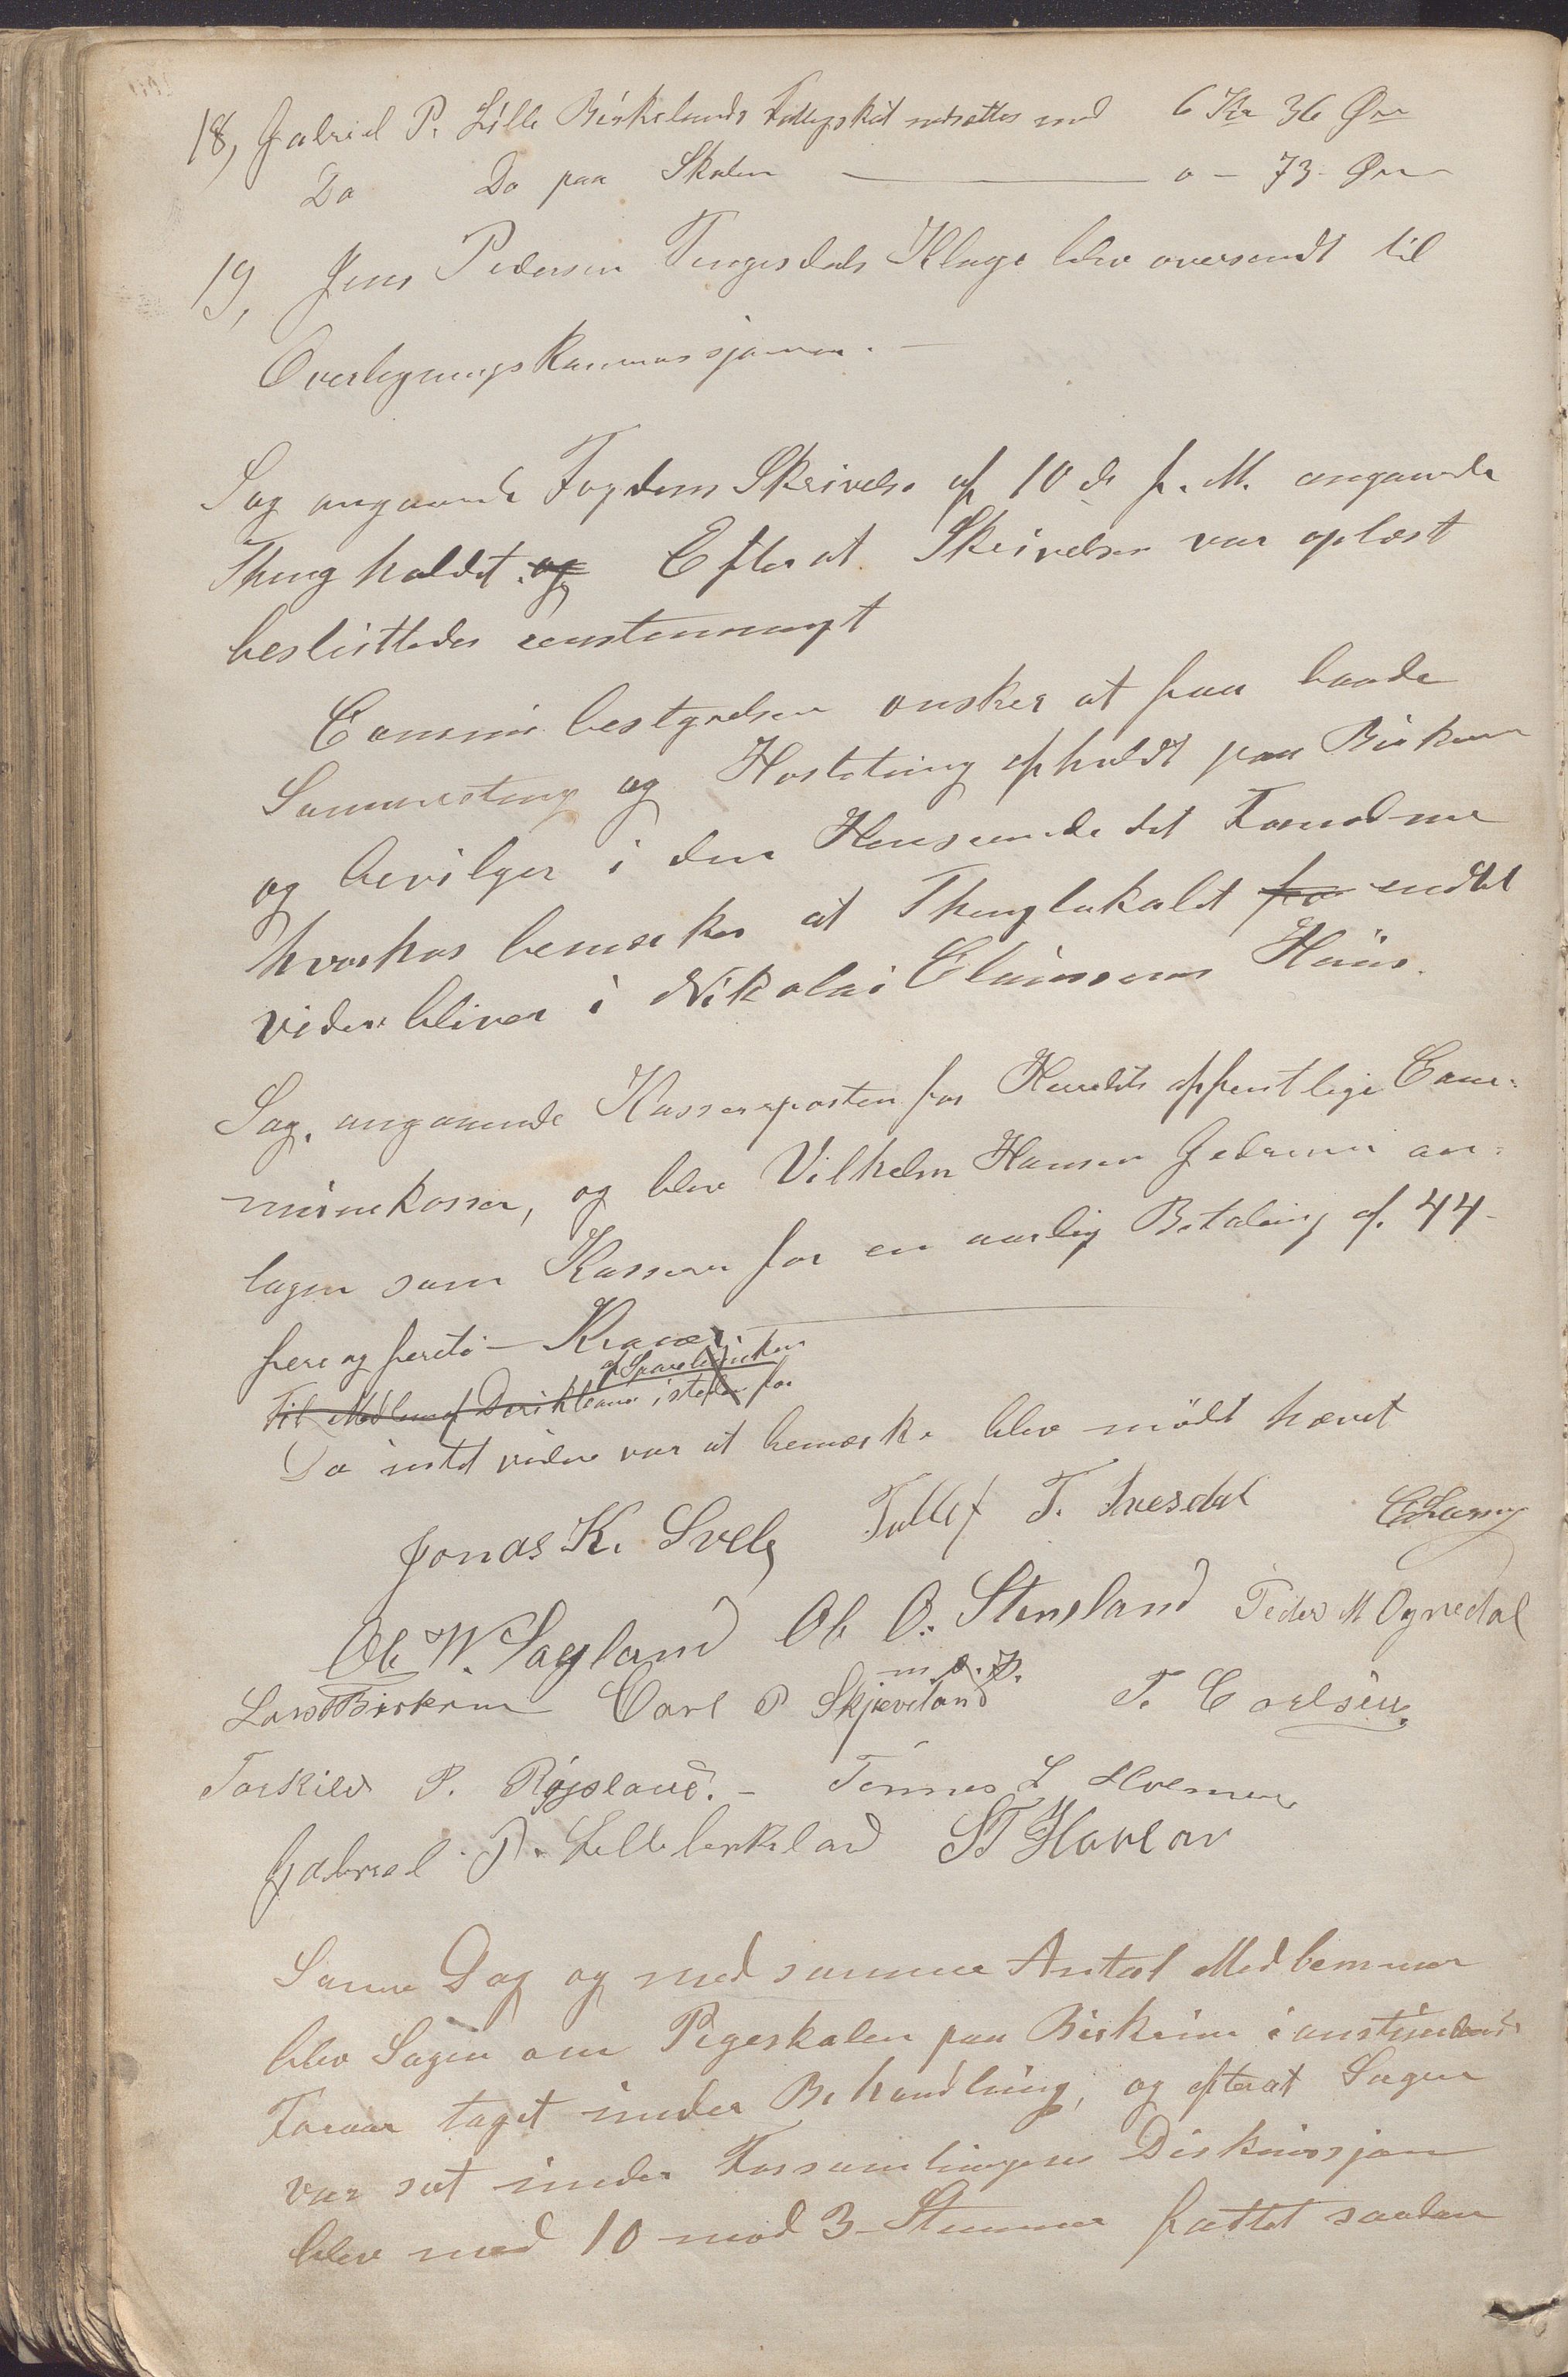 18, Gabriel P. Lille Birkelands Fattigskat nedsattes med 6 Kr 36 Øre
Do Do paa Skolen — o – 73 - Øre
19, Jens Pedersen Tengesdals Klage blev oversendt til
Overligningskommissjonen. —
Sag angaaende Fogdens Skrivelse af 10 ds f. M. angaaende
Thingholdet. og Efter at Skrivelsen var oplæst
besluttedes eenstemmigt
Commübestyrelsen ønsker at faa baade
Sommerting og Høstting opholdt paa Birkrem
og bevilger i den Henseende det Fornødne
hvorhos bemærkes at Thinglokalet fo indtil
videre bliver i Nikolai Claüssens Hüüs.
Sag, angaaende Kassererposten for Herredets offentlige Com-
münekasser, og blev Vilhelm Hansen Gedrem an-
tagen som Kasserer for en aarlig Betaling af. 44 -
fire og fireti — Kroner
af Sparebanken
Til Medlem af Direktionen istedenfor
Da intet videre var at bemærke blev mødet hævet
Jonas K. Svela Tollef T. Ivesdal
Ole W. Sagland Ole O. Stensland Peder M Ognedal
m. p. P.
Lars Birkrem Carl P Skjæveland T. Carlsen.
Torkild P. Røysland. – Tønnes L
Gabriel P. Lille birkeland ST Hovland
Samme Dag og med samme Antal Medlemmer
blev Sagen om Pigeskolen paa Birkrem i anstündende
Foraar taget ünder Behandling, og efterat Sagen
var sat ünder Forsamlingens Disküssjon
blev med 10 mod 3 - Stemmer fattet saadan